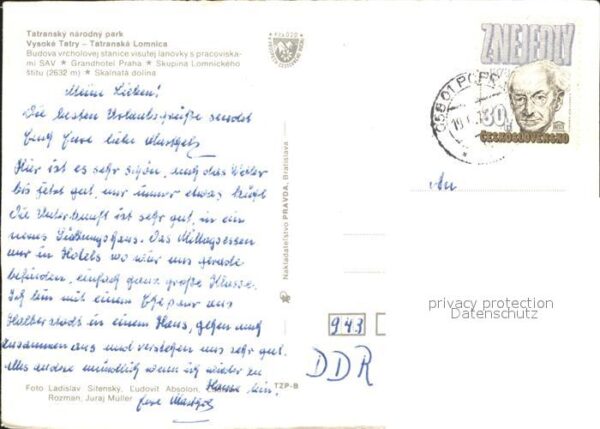 Tatranský národný park
Vysoké Tatry – Tatranská Lomnica
Budova vrcholovej stanice visutej lanovky s pracoviska-
mi SAV ★ Grandhotel Praha ★ Skupina Lomnického
štítu (2632 m) ★ Skalnatá dolina
Meine Lieben!
Die besten Urlaubsgrüße sendet
Euch Eure liebe
Hier ist es sehr schön, auch das Wetter
bis jetzt gut, nur immer etwas kühl
Die Unterkunft ist sehr gut, in ein
neues Siedlungshaus. Das Mittagessen
nur in Hotels wo wir uns gerade
befinden, einfach ganz große Klasse.
Ich bin mit einem Ehepaar aus
Halberstadt in einem Haus, gehen auch
zusammen aus und verstehen uns sehr gut.
Alles andere mündlich wenn ich wieder zu
Hause bin.
Eure
Foto Ladislav Sitenský, Ľudovít Absolon,
Rozman, Juraj Müller
TZP-B
Nakladateľstvo PRAVDA, Bratislava
ZNEJEDLÝ
30
ČESKOSLOVENSKO
058 01 POPRAD
An
943
DDR
privacy protection
Datenschutz